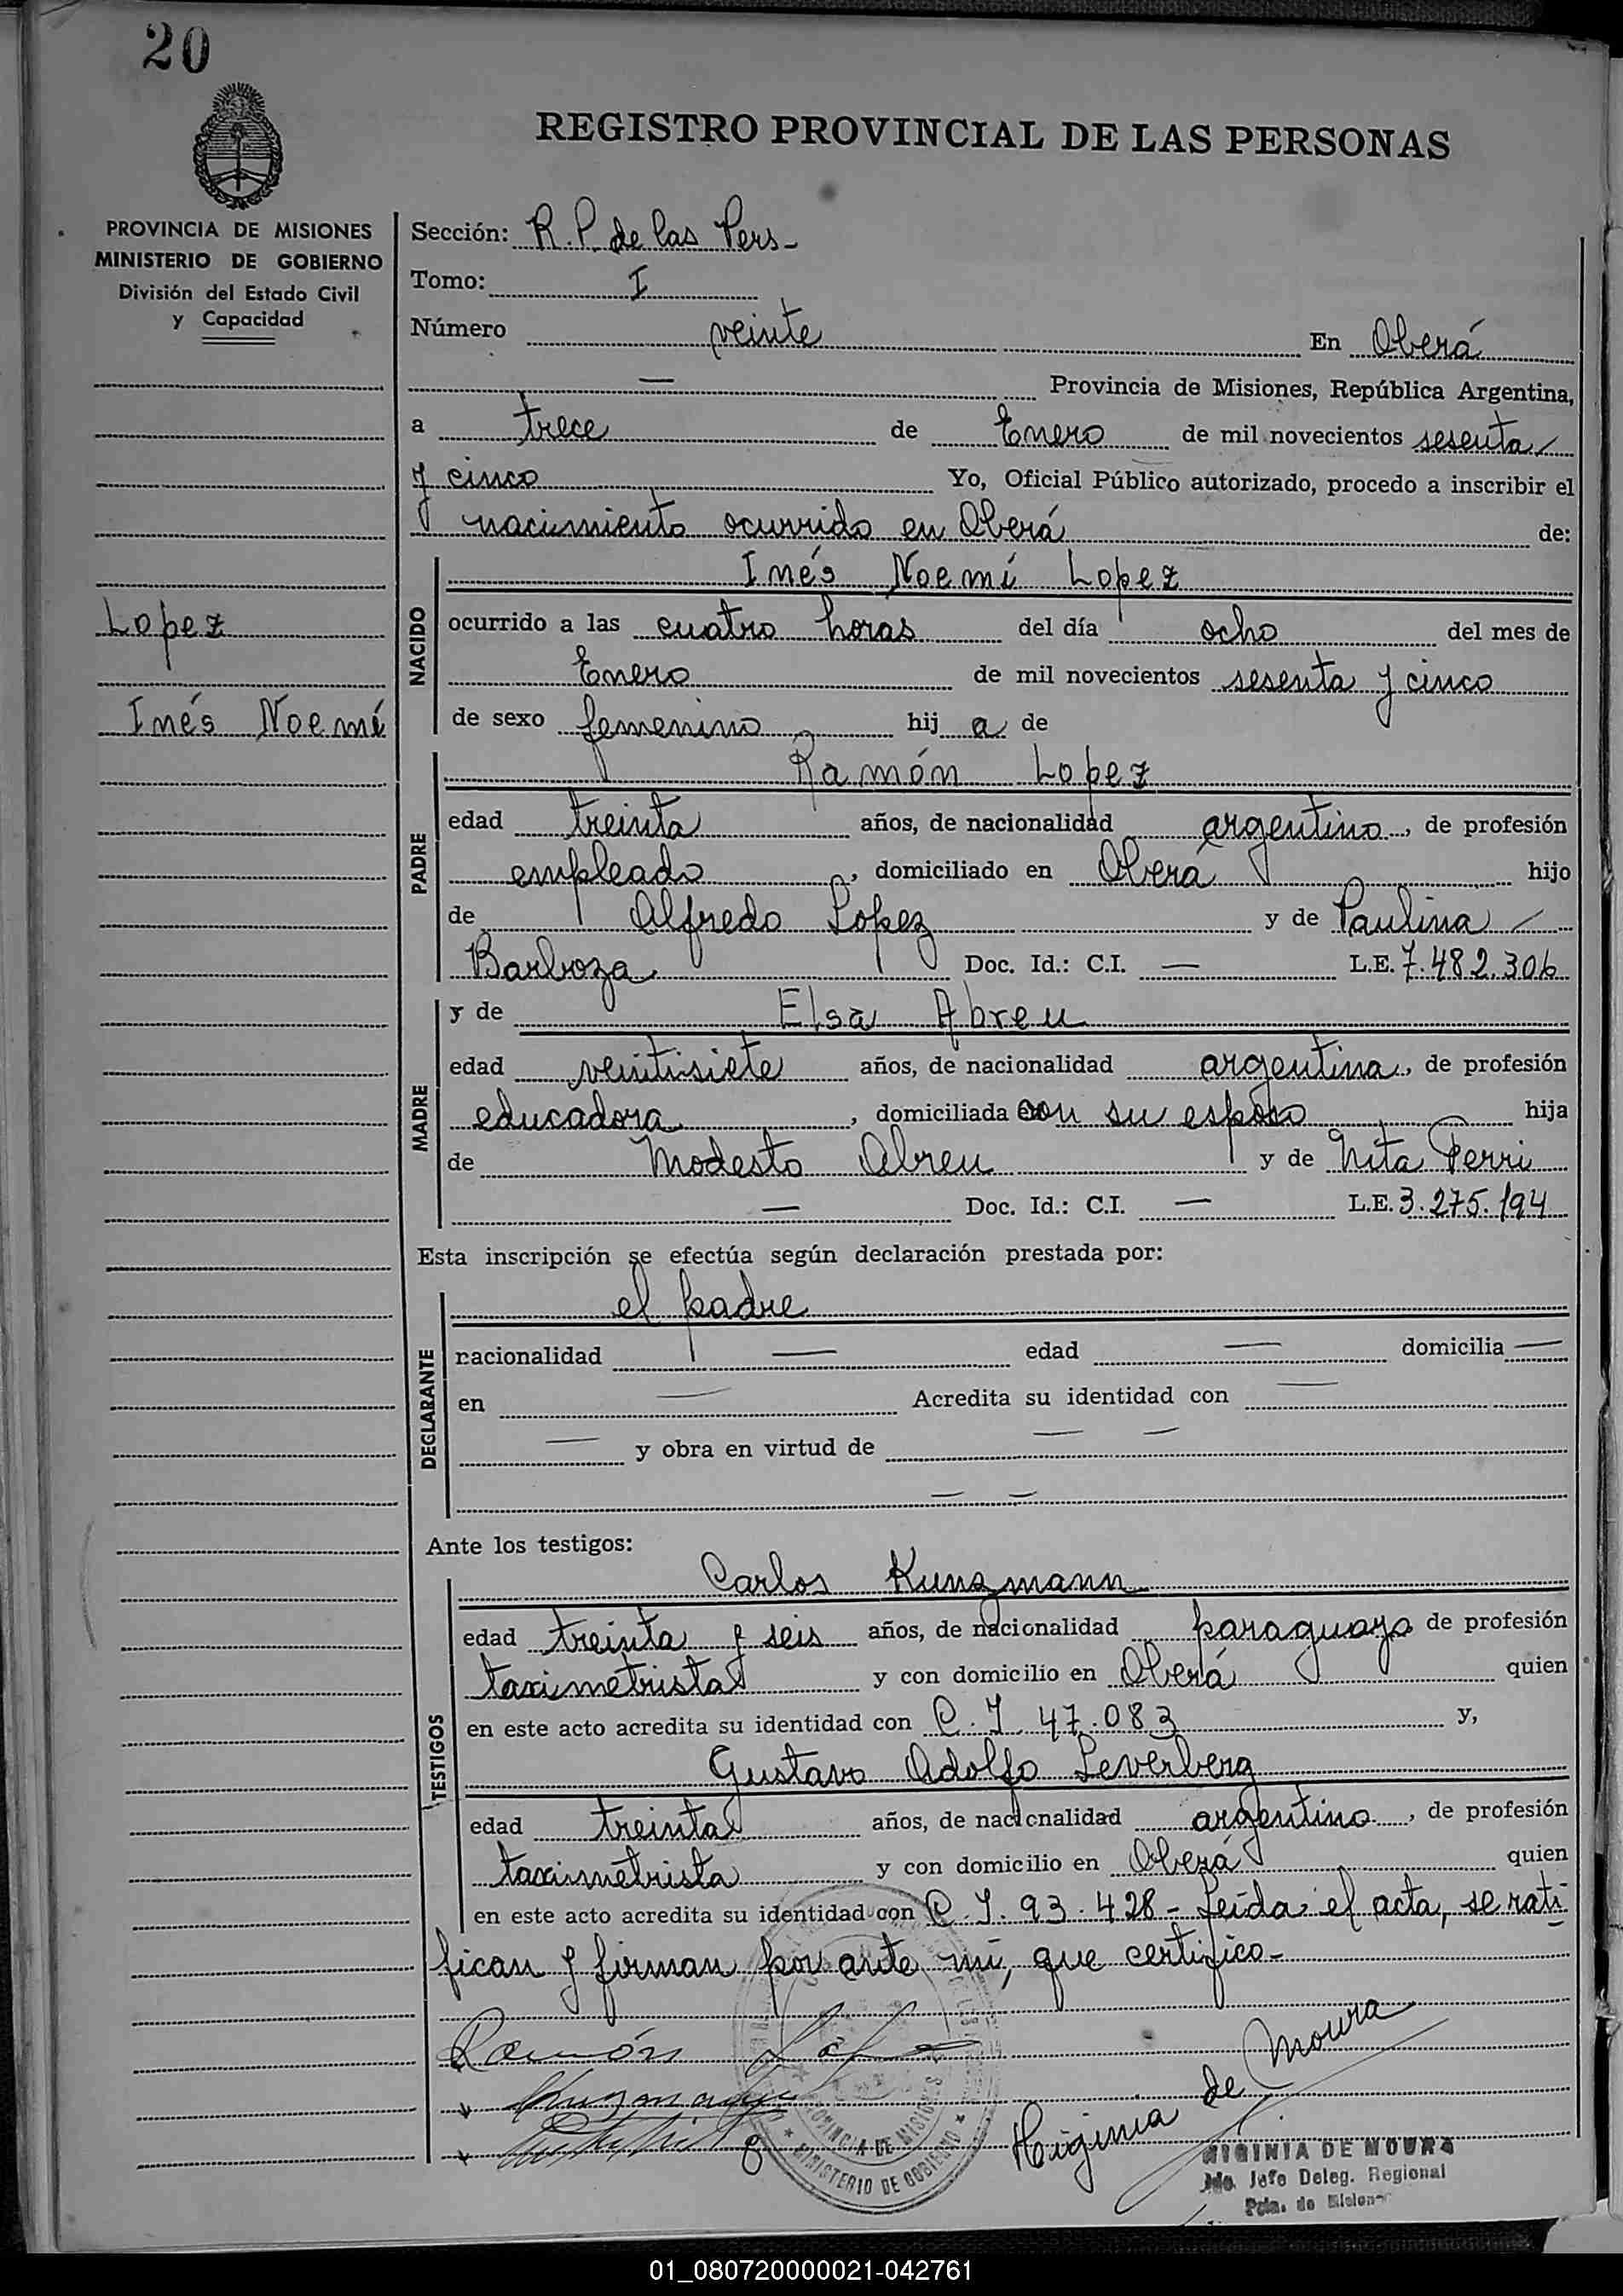 20
REGISTRO PROVINCIAL DE LAS PERSONAS
PROVINCIA DE MISIONES
MINISTERIO DE GOBIERNO
División del Estado Civil
y Capacidad
Lopez
Inés Noemí
Sección: R.P. de las Pers-
Tomo: I
Número veinte En Oberá
— Provincia de Misiones, República Argentina,
a trece de Enero de mil novecientos sesenta
y cinco Yo, Oficial Público autorizado, procedo a inscribir el
nacimiento ocurrido en Oberá de:
NACIDO
Inés Noemí Lopez
ocurrido a las cuatro horas del día ocho del mes de
Enero de mil novecientos sesenta y cinco
de sexo femenino hij a de
PADRE
Ramón Lopez
edad treinta años, de nacionalidad argentino, de profesión
empleado, domiciliado en Oberá hijo
de Alfredo Lopez y de Paulina
Barboza Doc. Id.: C.I. — L.E. 7.482.306
MADRE
y de Elsa Abreu
edad veintisiete años, de nacionalidad argentina, de profesión
educadora, domiciliada con su esposo hija
de Modesto Abreu y de Nita Perri
— Doc. Id.: C.I. — L.E. 3.275.194
Esta inscripción se efectúa según declaración prestada por:
DECLARANTE
el padre
nacionalidad — edad — domicilia —
en — Acredita su identidad con —
— y obra en virtud de — —
— —
Ante los testigos:
TESTIGOS
Carlos Kunzmann
edad treinta y seis años, de nacionalidad paraguayo de profesión
taximetrista y con domicilio en Oberá quien
en este acto acredita su identidad con C.I 47.083 y,
Gustavo Adolfo Leverberg
edad treinta años, de nacionalidad argentino, de profesión
taximetrista y con domicilio en Oberá quien
en este acto acredita su identidad con C.I. 93.428- Leída el acta, se rati
fican y firman por ante mí, que certifico-
Ramón
PROVINCIA DE MISIONES
MINISTERIO DE GOBIERNO
Higinia de Moura
HIGINIA DE MOURA
Jefe Deleg. Regional
Pcia. de Misiones
01_080720000021-042761